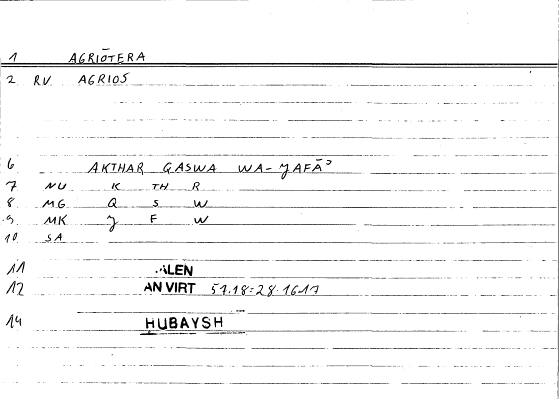 1 AGRIŌTERA
2 RV AGRIOS
6 AKTHAR QASWA WA-JAFĀʾ
7 NU K TH R
8 MG Q S W
9 MK J F W
10 SA
11 ALEN
12 AN VIRT 57.18=28.16-17
14 HUBAYSH